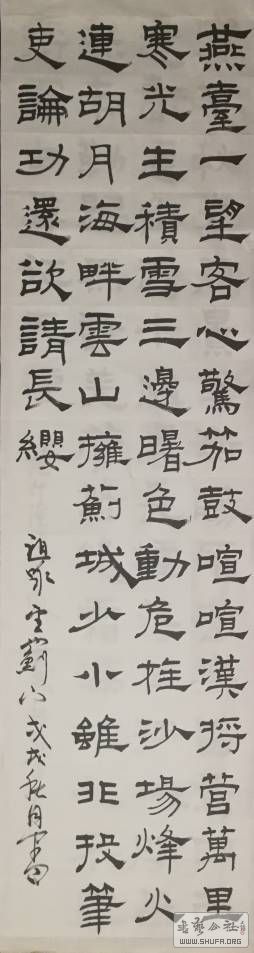 燕臺一望客心驚笳鼓喧喧漢将营萬里
寒光生積雪三邊曙色動危旌沙場烽火
連胡月海畔雲山擁薊城少小雖非投筆
吏論功還欲請長纓
祖詠望薊门戊戌秋月
书艺公社
WWW.SHUFA.ORG